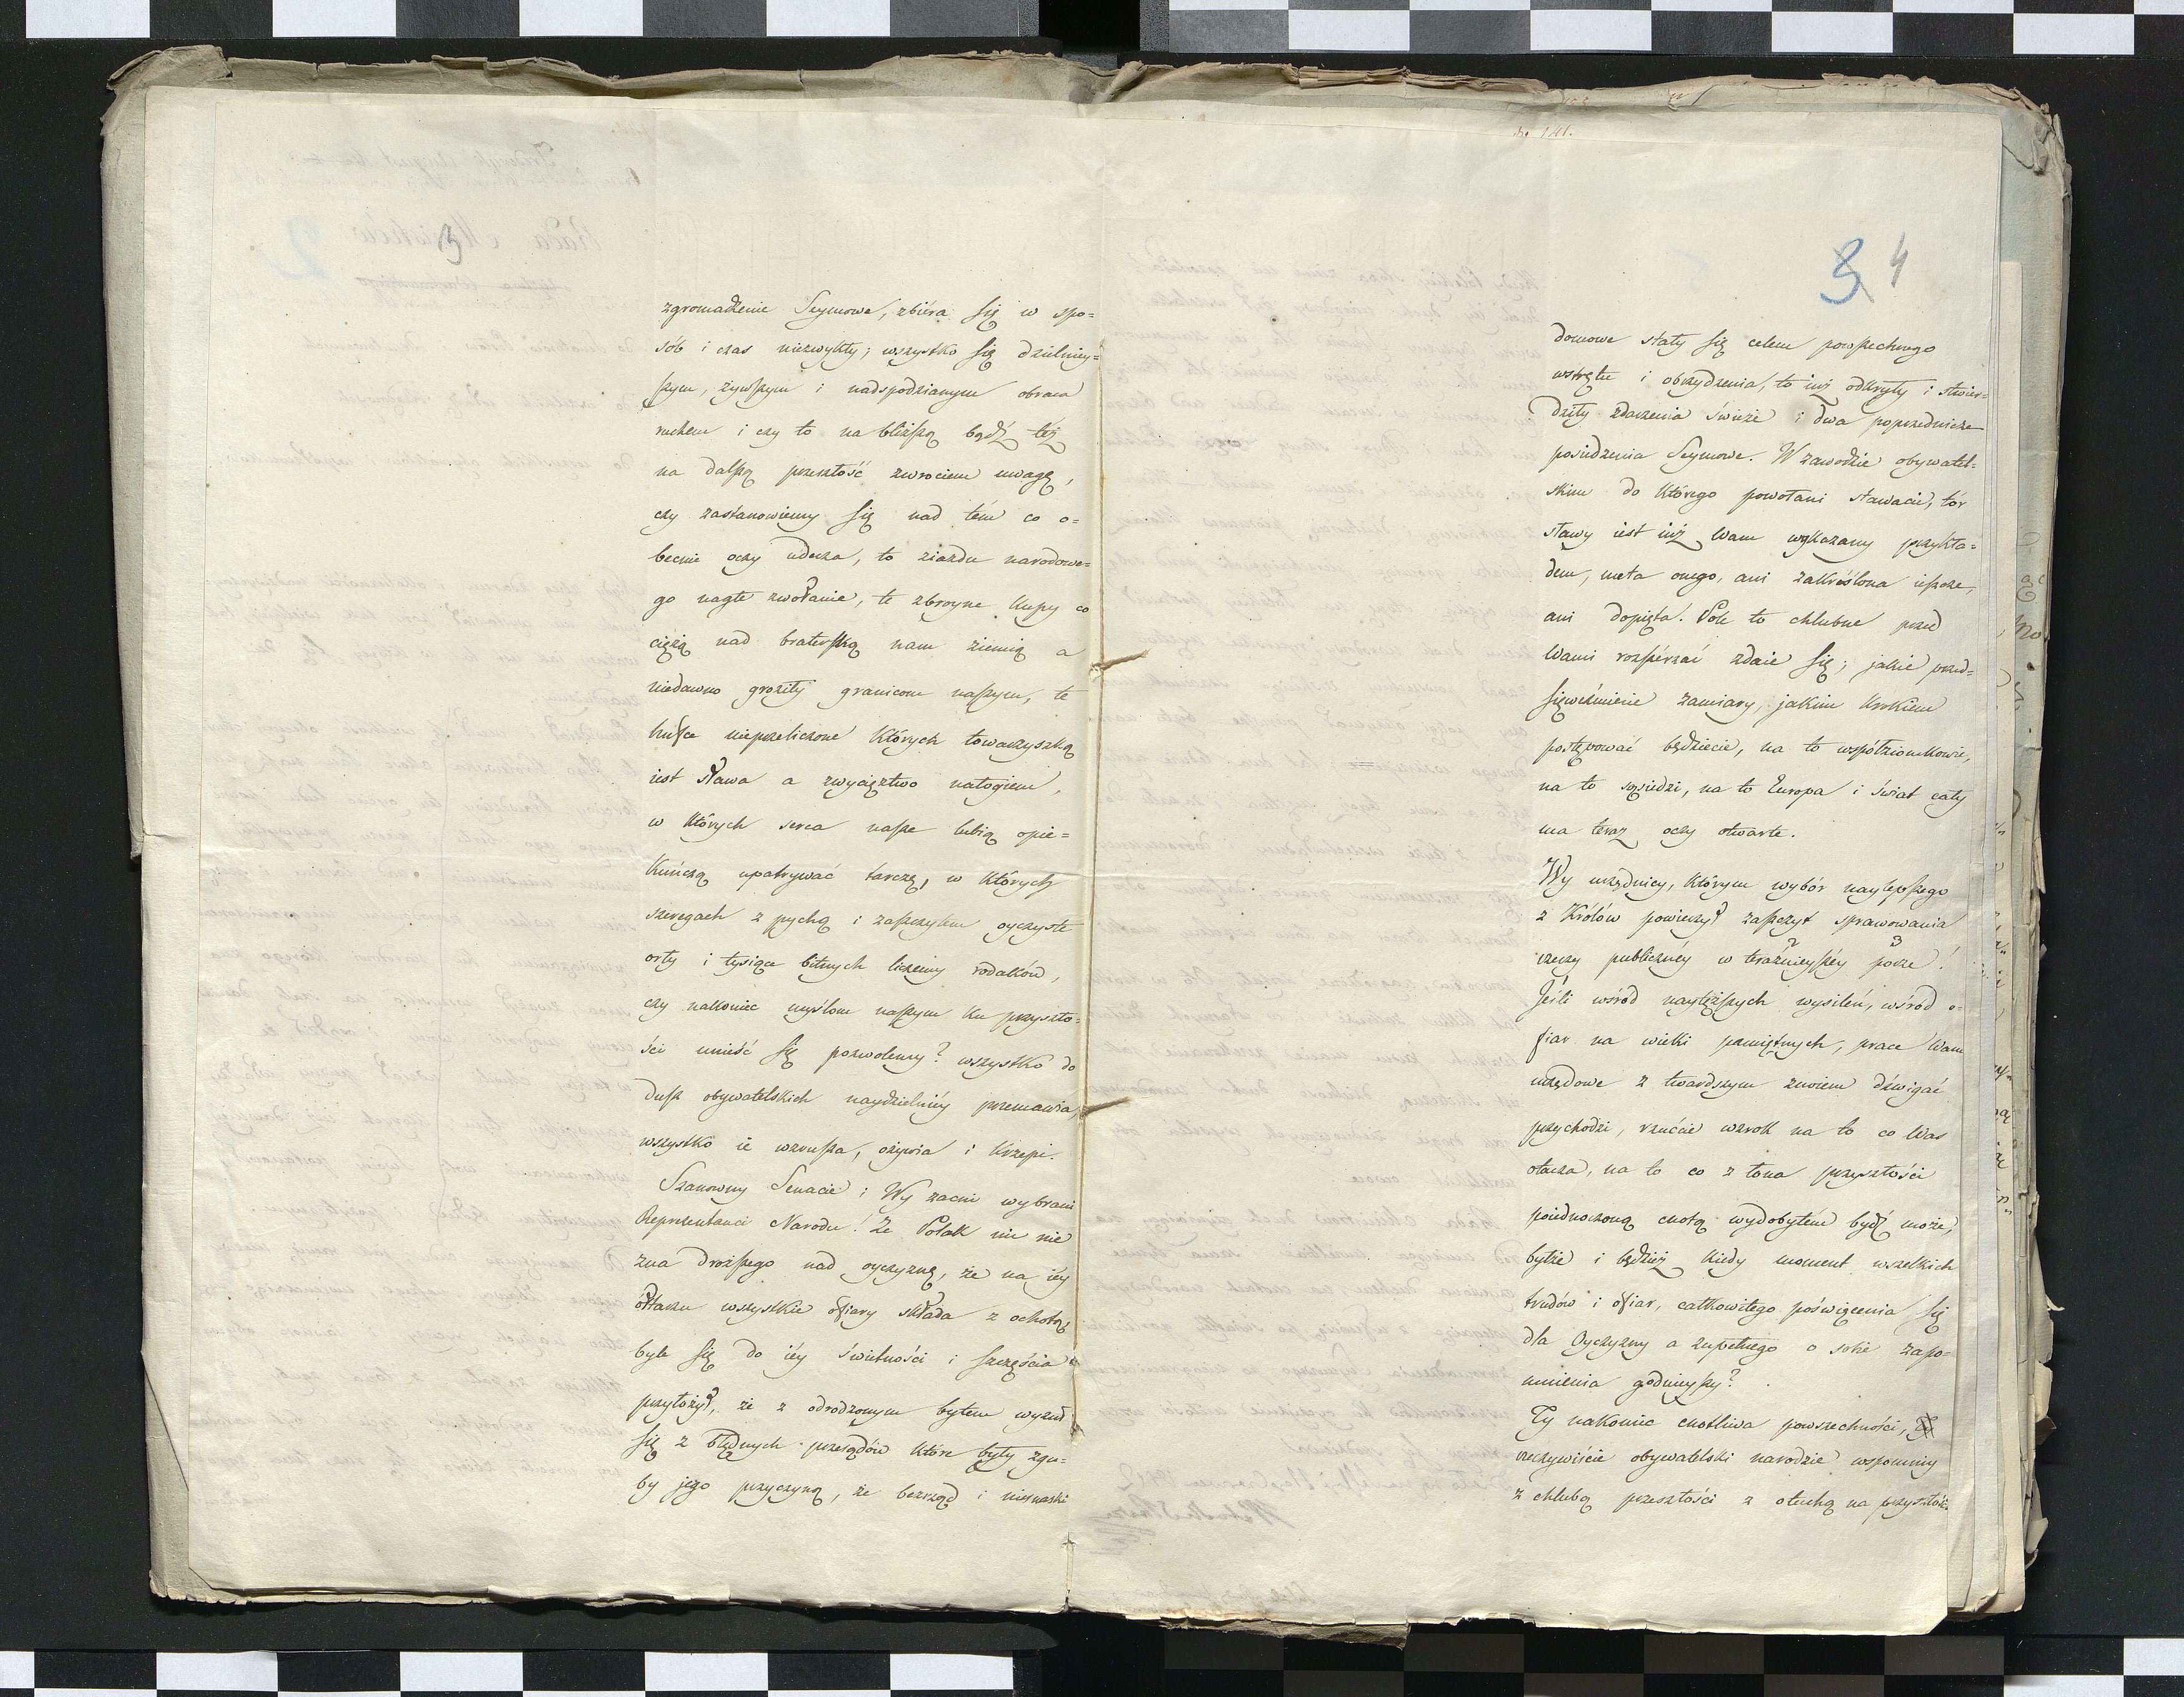 3
zgromadzenie Seymowe, zbiéra się w spo=
sób i czas niezwykły; wszystko się dzielniey=
szym, żywszym i nadspodzianym obraca
ruchem i czy to na bliższą bądź téż
na dalszą przeszłość zwrociem uwagę,
czy zastanowiemy się nad tém co o=
becnie oczy uderza, to ziazdu narodowe=
go nagłe zwołanie, te zbroyne kupy co
ciężą nad braterską nam ziemią a
niedawno groziły granicom naszym, te
hufce nieprzeliczone których towarzyszką
iest sława a zwycięztwo nałogiem,
w których serca nasze lubią opie=
kuńczą upatrywać tarczę, w których
szeregach z pychą i zaszczytem oyczyste
orły i tysiące bitnych liczemy rodaków,
czy nakoniec myślom naszym ku przyszło=
ści unieść się pozwolemy? wszystko do
dusz obywatelskich naydzielniéy przemawia,
wszystko ie wzrusza, ożywia i krzepi.
Szanowny Senacie i Wy zacni wybrani
Reprezentanci Narodu! Że Polak nic nie
zna droższego nad oyczyznę, że na iéy
ołtarzu wszystkie ofiary składa z ochotą
byle się do iéy świetności i szczęścia
przyłożył, że z odrodzonym bytem wyzuł
się z błędnych przesądów które były zgu=
by jego przyczyną, że bezrząd i niesnaski
do 141.
3 4
domowe stały się celem powszechnego
wstrętu i obrzydzenia, to iuż odkryły i stwier=
dziły zdarzenia świeże i dwa poprzednicze
posiedzenia Seymowe. W zawodzie obywatel=
skim do którego powołani stawacie, tór
sławy iest iuż Wam wykazany przykła=
dem, meta onego, ani zakréślona ieszcze,
ani dopięta. Pole to chlubne przed
Wami rozszérzać zdaie się; jakie przed=
sięweźmiecie zamiary, jakim krokiem
postępować będziecie, na to współziomkowie,
na to sąsiedzi, na to Europa i świat cały
ma teraz oczy otwarte.
Wy urzędnicy, którym wybór naylepszego
z Królów powierzył zaszczyt sprawowania
rzeczy publicznéy w teraźnieyszéy porze!
Jeśli wśród naytęższych wysileń, wśród o=
fiar na wieki pamiętnych, prace Wam
urzędowe z twardszym znoiem dźwigać
przychodzi, rzućcie wzrok na to co Was
otacza, na to co z łona przyszłości
poiednoczoną cnotą wydobytém bydź może,
byłże i będzież kiedy moment wszelkich
trudów i ofiar, całkowitego poświęcenia się
dla Oyczyzny a zupełnego o sobie zapo=
mnienia godnieyszy?
Ty nakoniec cnotliwa powszechności,
rzeczywiście obywatelski narodzie wspomniy
z chlubą przeszłości z otuchą na przyszłość